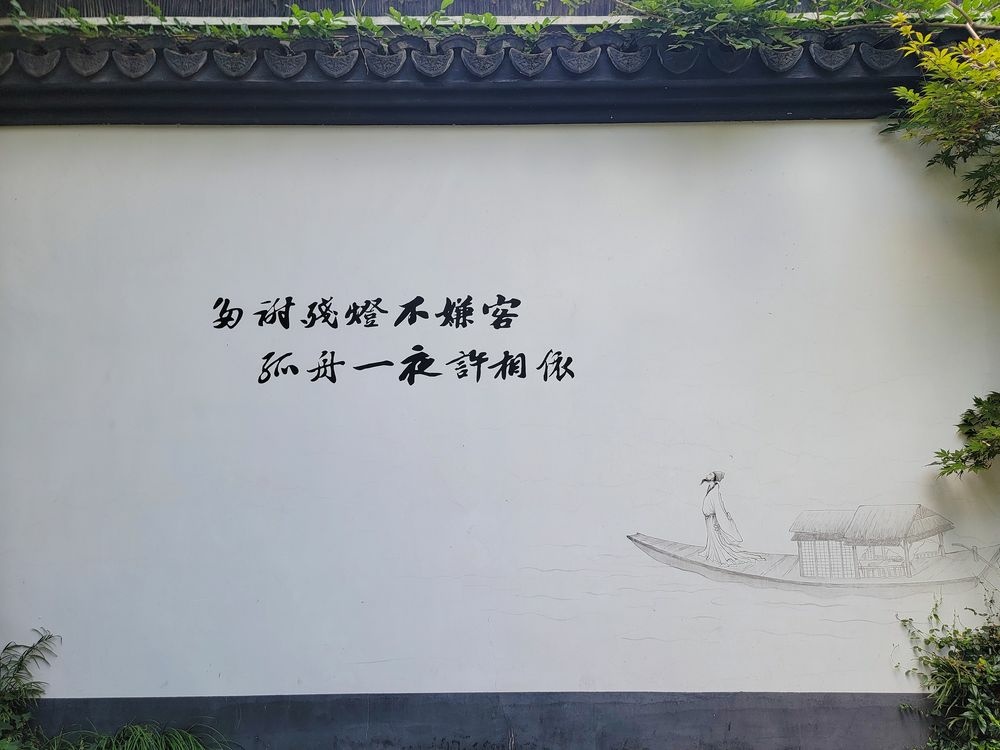 多谢残燈不嫌客
孤舟一夜許相依